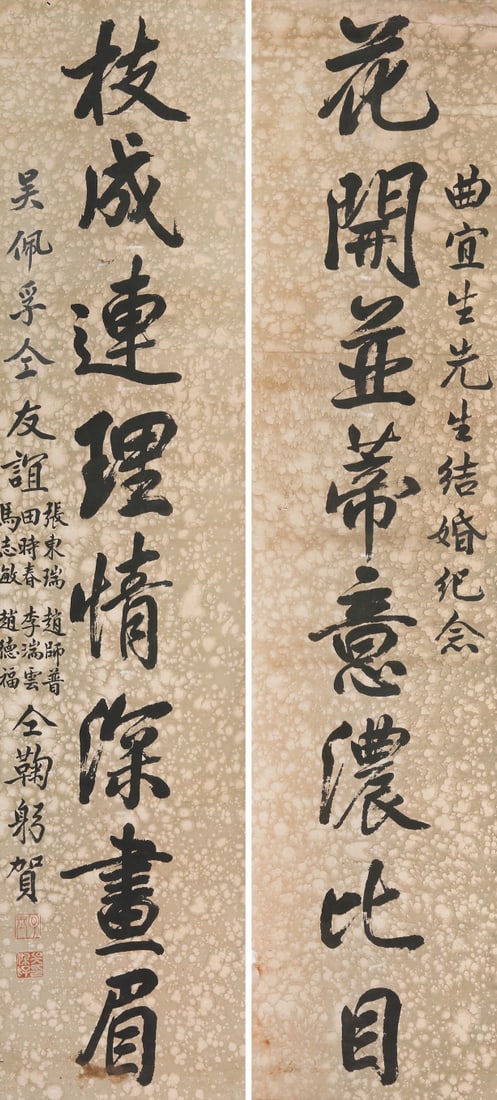 曲宜生先生结婚纪念
花開並蒂意濃比目
枝成連理情深畫眉
吴佩孚仝友誼
張東瑞 趙師普
田時春 李瑞雲
馬志敏 趙德福
仝鞠躬賀